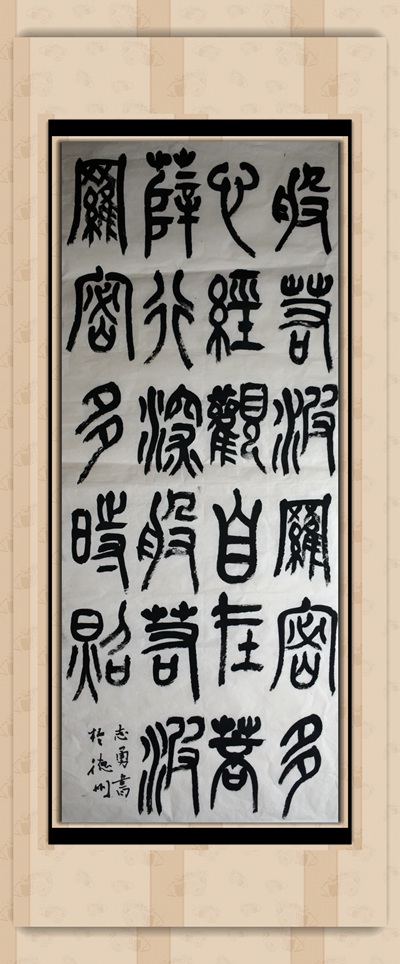 般若波羅密多
心經觀自在菩
薛行深般若波
羅密多時照
志勇書
於德州